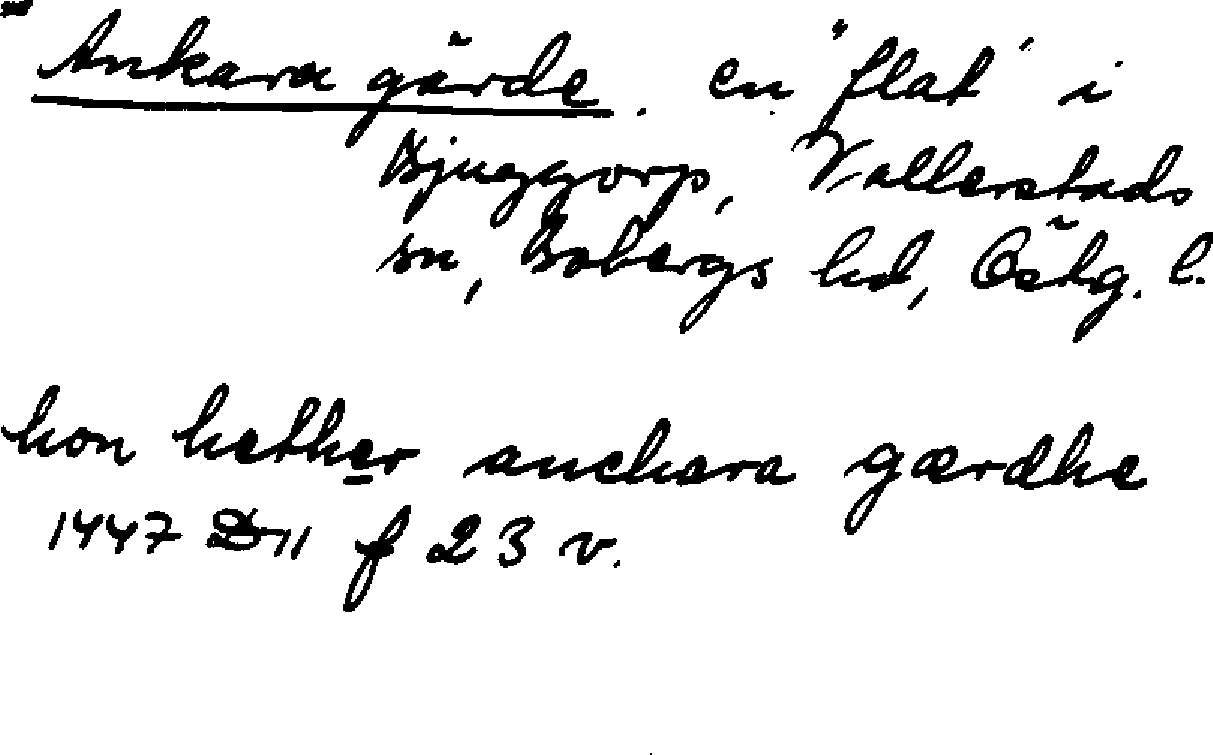 Ankara gärde. en "flat" i
Bjuggorp, Vallerstads
sn, Bobergs hd, Östg. l.
hon hether anchara gærdhe
1447 D 11 f 23 v.